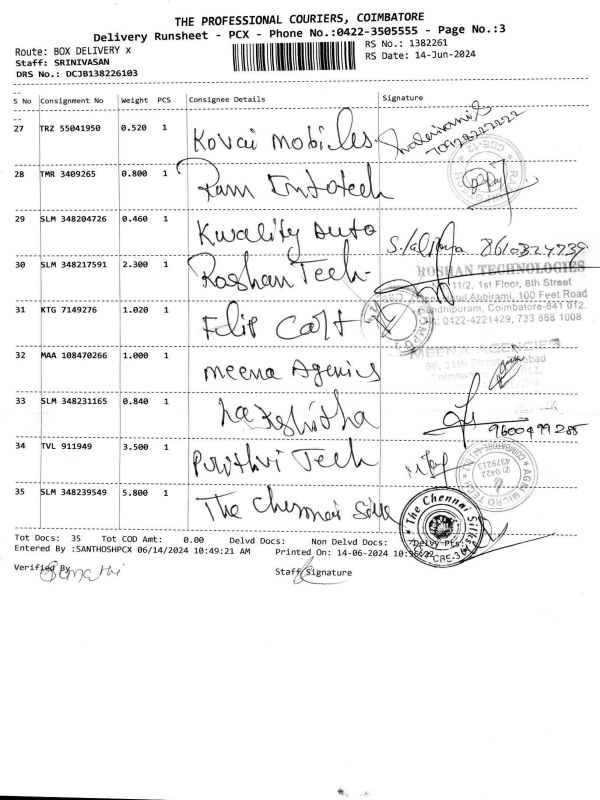 THE PROFESSIONAL COURIERS, COIMBATORE
Delivery Runsheet - PCX - Phone No.:0422-3505555 - Page No.:3
Route: BOX DELIVERY x
RS No.: 1382261
Staff: SRINIVASAN
RS Date: 14-Jun-2024
DRS No.: DCJB138226103
S No Consignment No Weight PCS Consignee Details Signature
27 TRZ 55041950 0.520 1 Kovai mobiles
28 TMR 3409265 0.800 1 Ram Infotech
29 SLM 348204726 0.460 1 Kwality Auto 8610324739
30 SLM 348217591 2.300 1 Roshan Tech-
ROSHAN TECHNOLOGIES
11/2, 1st Floor, 8th Street
100 Feet Road
Coimbatore-641 012.
0422-4221429, 733 888 1008
31 KTG 7149276 1.020 1 Flip Cart
32 MAA 108470266 1.000 1 meena Agencies
MEENA AGENCIES
33 SLM 348231165 0.840 1 Lakshitha 9600499285
34 TVL 911949 3.500 1 Prithvi Tech
35 SLM 348239549 5.800 1 The Chennai Silk
The Chennai Silks
CBE-36
Tot Docs: 35 Tot COD Amt: 0.00 Delvd Docs: Non Delvd Docs: Delvy Pts:
Entered By :SANTHOSHPCX 06/14/2024 10:49:21 AM Printed On: 14-06-2024
Verified By
Staff Signature